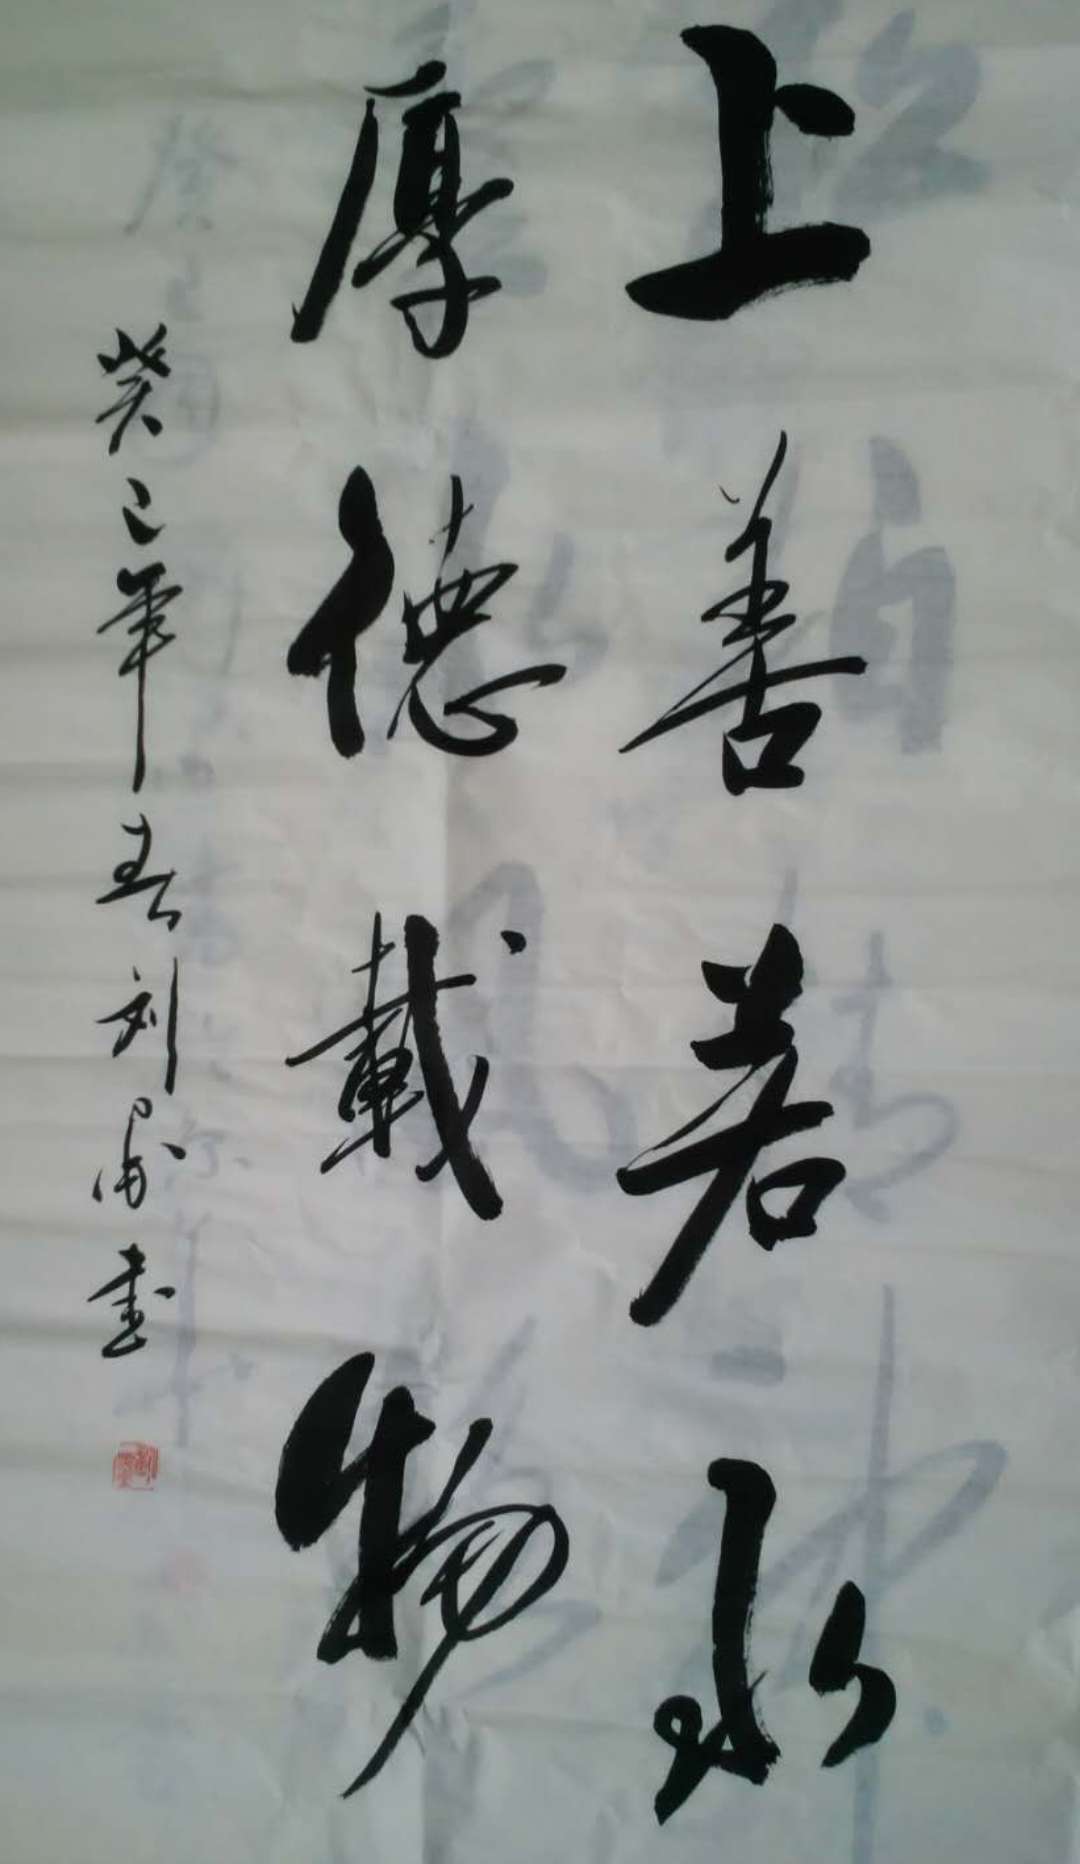 上善若水
厚德載物
癸巳年春刘甫书